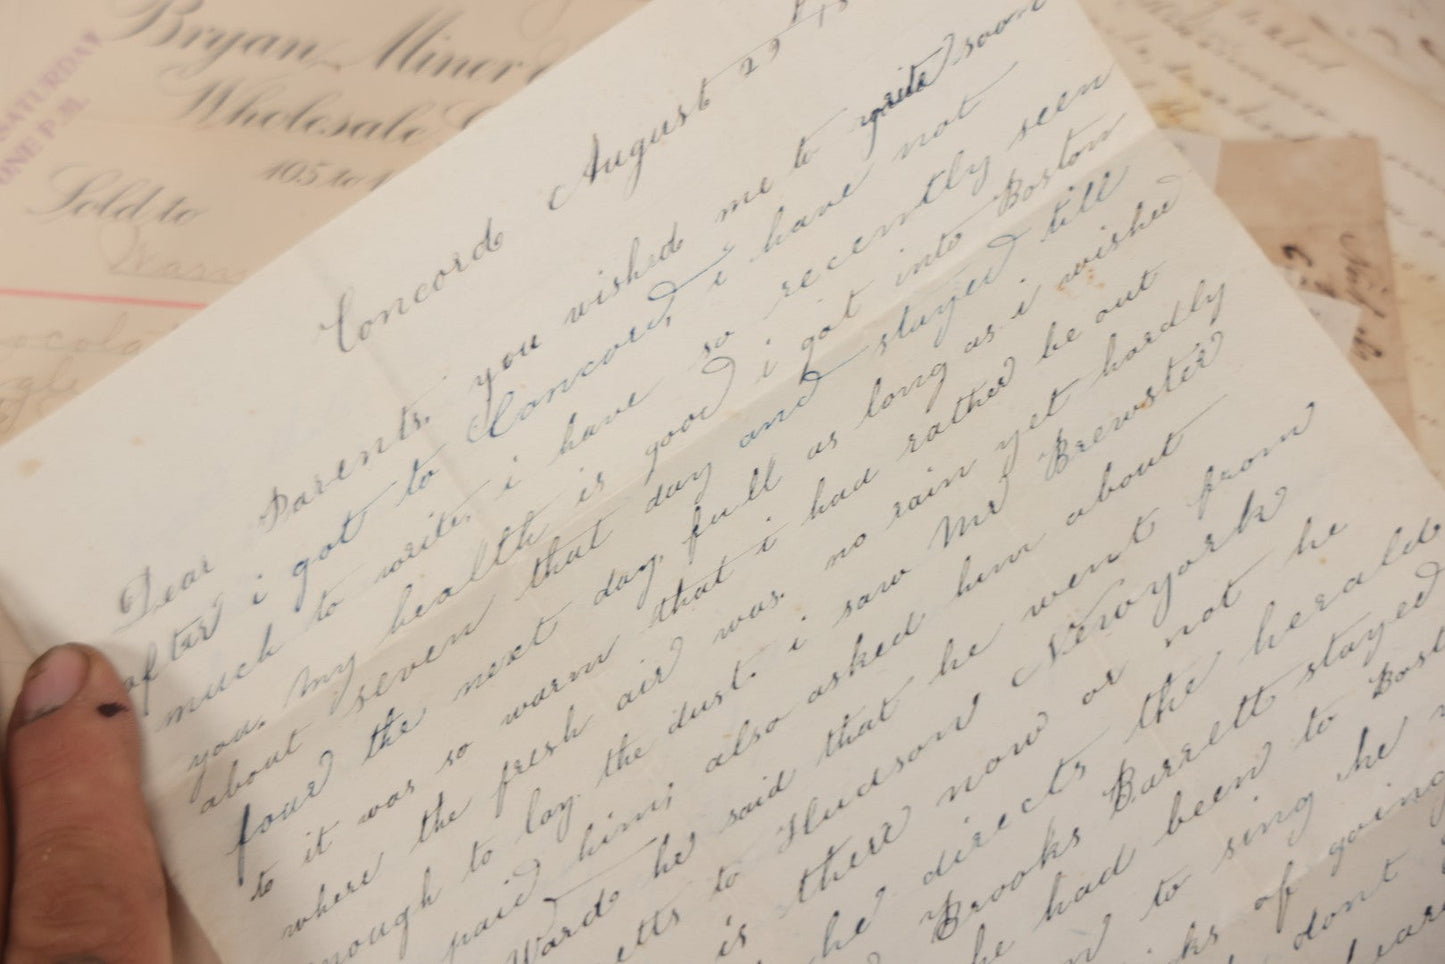 SATURDAY
ONE P.M.
Bryan, Miner
Wholesale
105 to 1
Sold to
Concord August 29th 18
Dear Parents, you wished me to write soon
after i got to Concord, i have not
much to write, i have so recently seen
you. My health is good i got into Boston
about seven that day and stayed till
four the next day, full as long as i wished
to it was so warm that i had rather be out
where the fresh air was. no rain yet hardly
enough to lay the dust. i saw Mr Brewster
paid him; also asked him about
Ward he said that he went from
etts to Hudson Newyork
is there now or not he
he directs the herald
Brooks Barrett stayed
he had been to Bost
to sing he
of going
dont